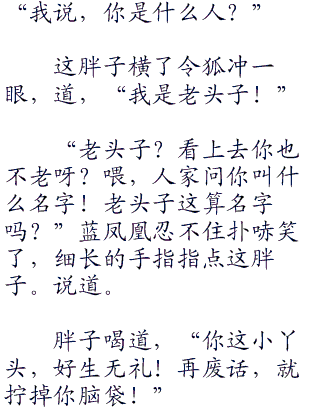 “我说，你是什么人？”
这胖子横了令狐冲一
眼，道，“我是老头子！”
“老头子？看上去你也
不老呀？喂，人家问你叫什
么名字！老头子这算名字
吗？”蓝凤凰忍不住扑哧笑
了，细长的手指指点这胖
子。说道。
胖子喝道，“你这小丫
头，好生无礼！再废话，就
拧掉你脑袋！”